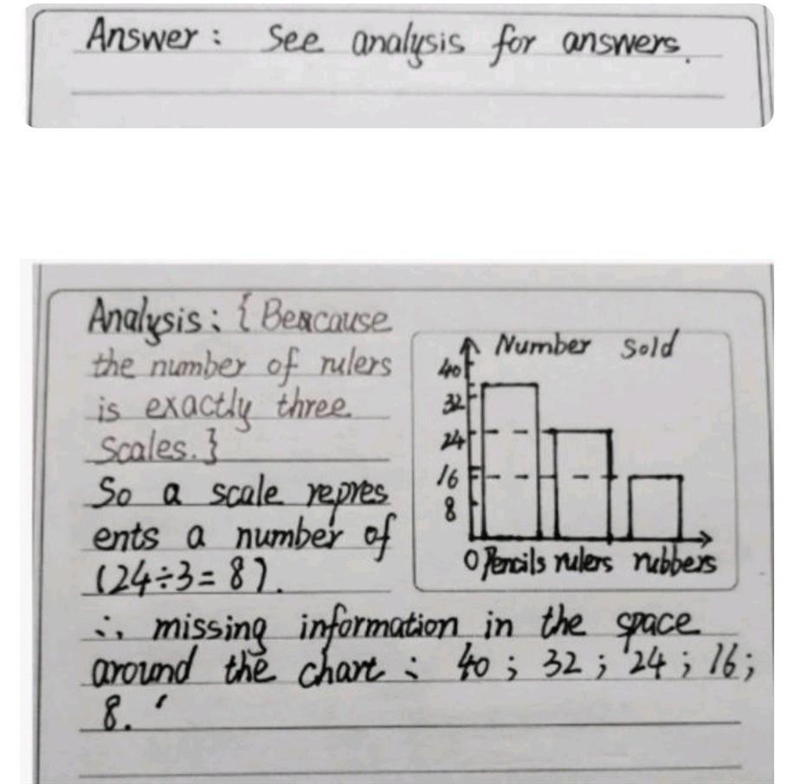 Answer: See analysis for answers.
Analysis: { Beacause
the number of rulers
is exactly three
Scales. }
So a scale repres
ents a number of
(24÷3=8).
∴ missing information in the space
around the chart: 40; 32; 24; 16;
8.
Number Sold
40
32
24
16
8
0 Pencils rulers rubbers